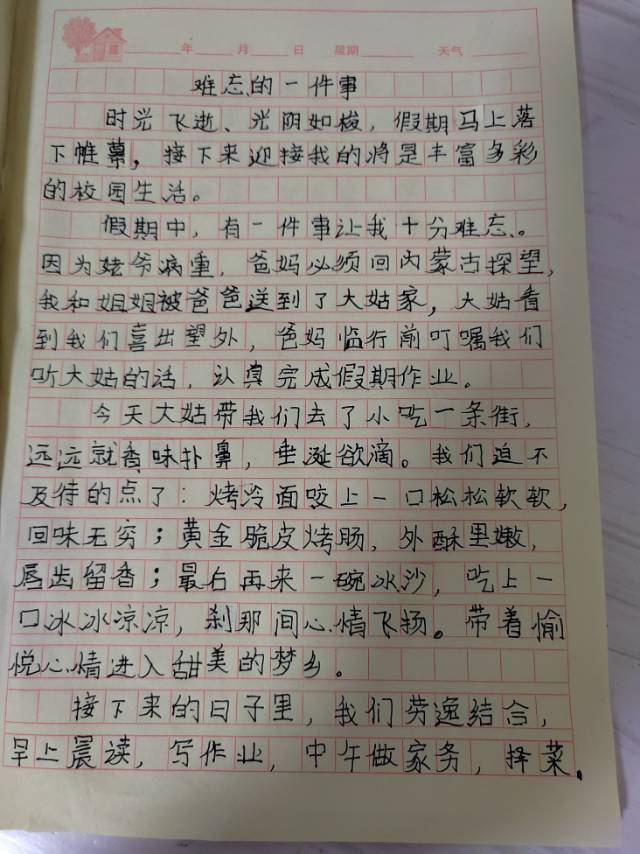 年 月 日 星期 天气
难忘的一件事
时光飞逝、光阴如梭，假期马上落
下帷幕，接下来迎接我的将是丰富多彩
的校园生活。
假期中，有一件事让我十分难忘。
因为姥爷病重，爸妈必须回内蒙古探望，
我和姐姐被爸爸送到了大姑家，大姑看
到我们喜出望外，爸妈临行前叮嘱我们
听大姑的话，认真完成假期作业。
今天大姑带我们去了小吃一条街，
远远就香味扑鼻，垂涎欲滴。我们迫不
及待的点了：烤冷面咬上一口松松软软，
回味无穷；黄金脆皮烤肠，外酥里嫩，
唇齿留香；最后再来一碗冰沙，吃上一
口冰冰凉凉，刹那间心情飞扬。带着愉
悦心情进入甜美的梦乡。
接下来的日子里，我们劳逸结合，
早上晨读，写作业，中午做家务，择菜。